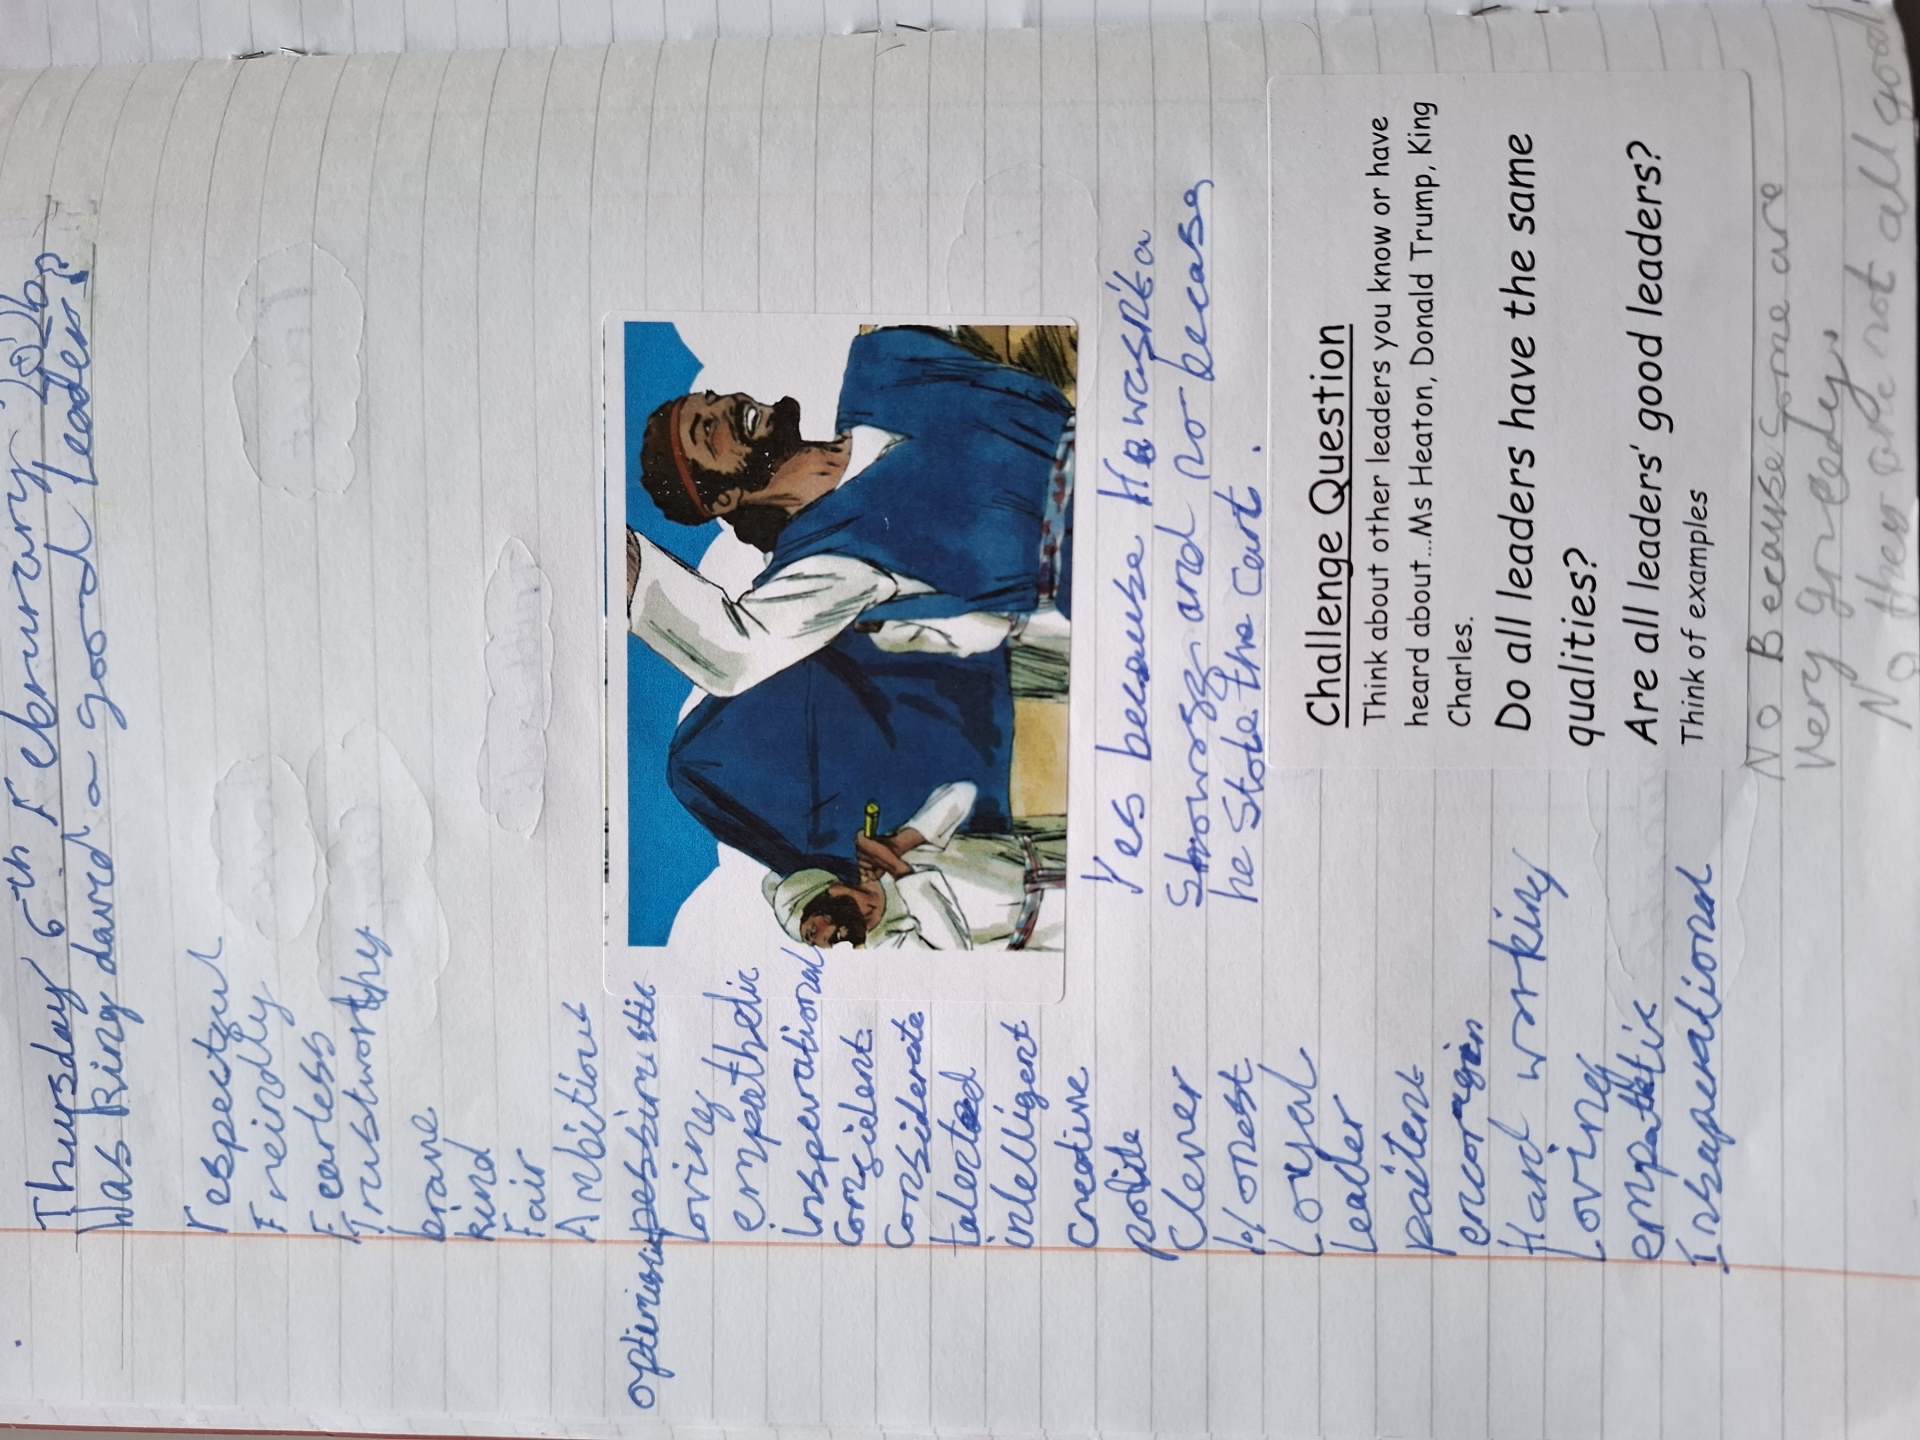 Thursday 6th Februrary 2026
Was King david a good Leader?
respectful
Freindly
Fearless
Trustworthy
brave
kind
Fair
Ambitious
pessimistic
Loving
empethedic
insperational
Confident
Considerate
talented
intelligent
Creative
polite
Clever
Honest
Loyal
leader
paitent
encoragin
Hard working
Loving
empathetic
Insaperational
Yes because He wasn't a
and no because
he stole the Cart.
Challenge Question
Think about other leaders you know or have
heard about...Ms Heaton, Donald Trump, King
Charles.
Do all leaders have the same
qualities?
Are all leaders' good leaders?
Think of examples
No Because some are
very greedy.
No they are not all good